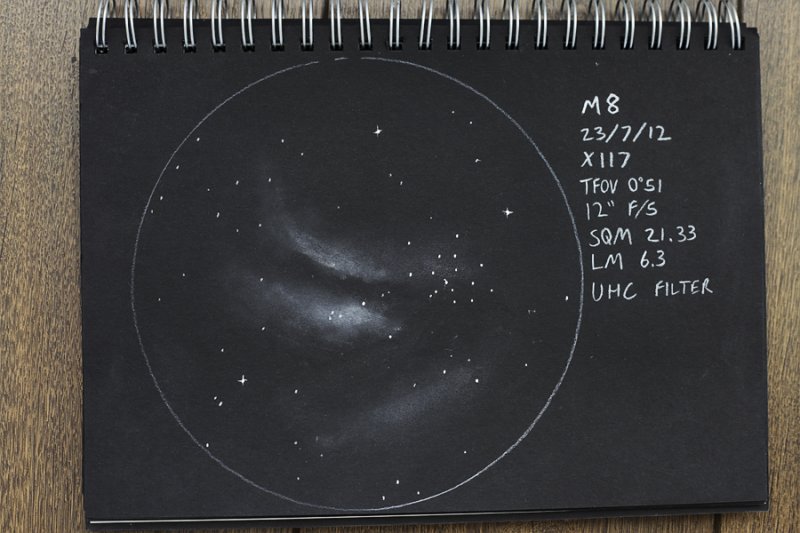 M8
23/7/12
X117
TFOV 0°51
12" F/5
SQM 21.33
LM 6.3
UHC FILTER